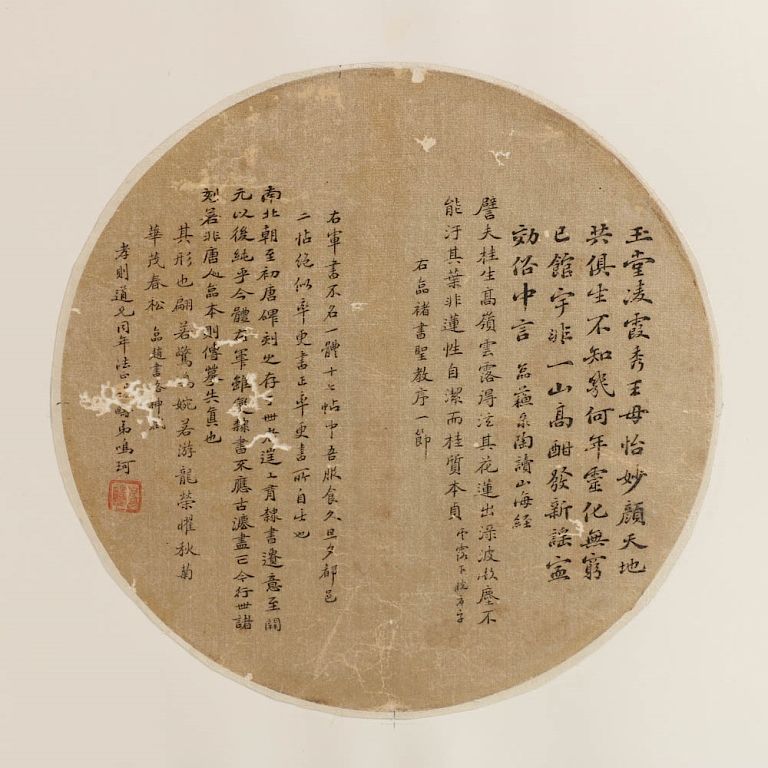 玉堂凌霞秀王母怡妙顏天地
共俱生不知幾何年靈化無窮
已館宇非一山高酣發新謠寧
効俗中言 臨蘇陶讀山海經
譬夫桂生高嶺雲露得泫其花蓮出淥波飛塵不
能汙其葉非蓮性自潔而桂質本貞 雲露下脫方字
右臨褚書聖教序一節
右軍書不名一體十七帖中吾服食久旦夕都邑
二帖絕似率更書正率更書所自出也
南北朝至初唐碑刻之存于世者遑上有隸書遺意至開
元以後純乎今體右軍雖變隸書不應古灋盡亡今行世諸
刻若非唐人臨本則傳摹失真也
其形也翩若驚鴻婉若游龍榮曜秋菊
華茂春松 臨趙書洛神賦
孝則道兄同年法正 弟鳴珂